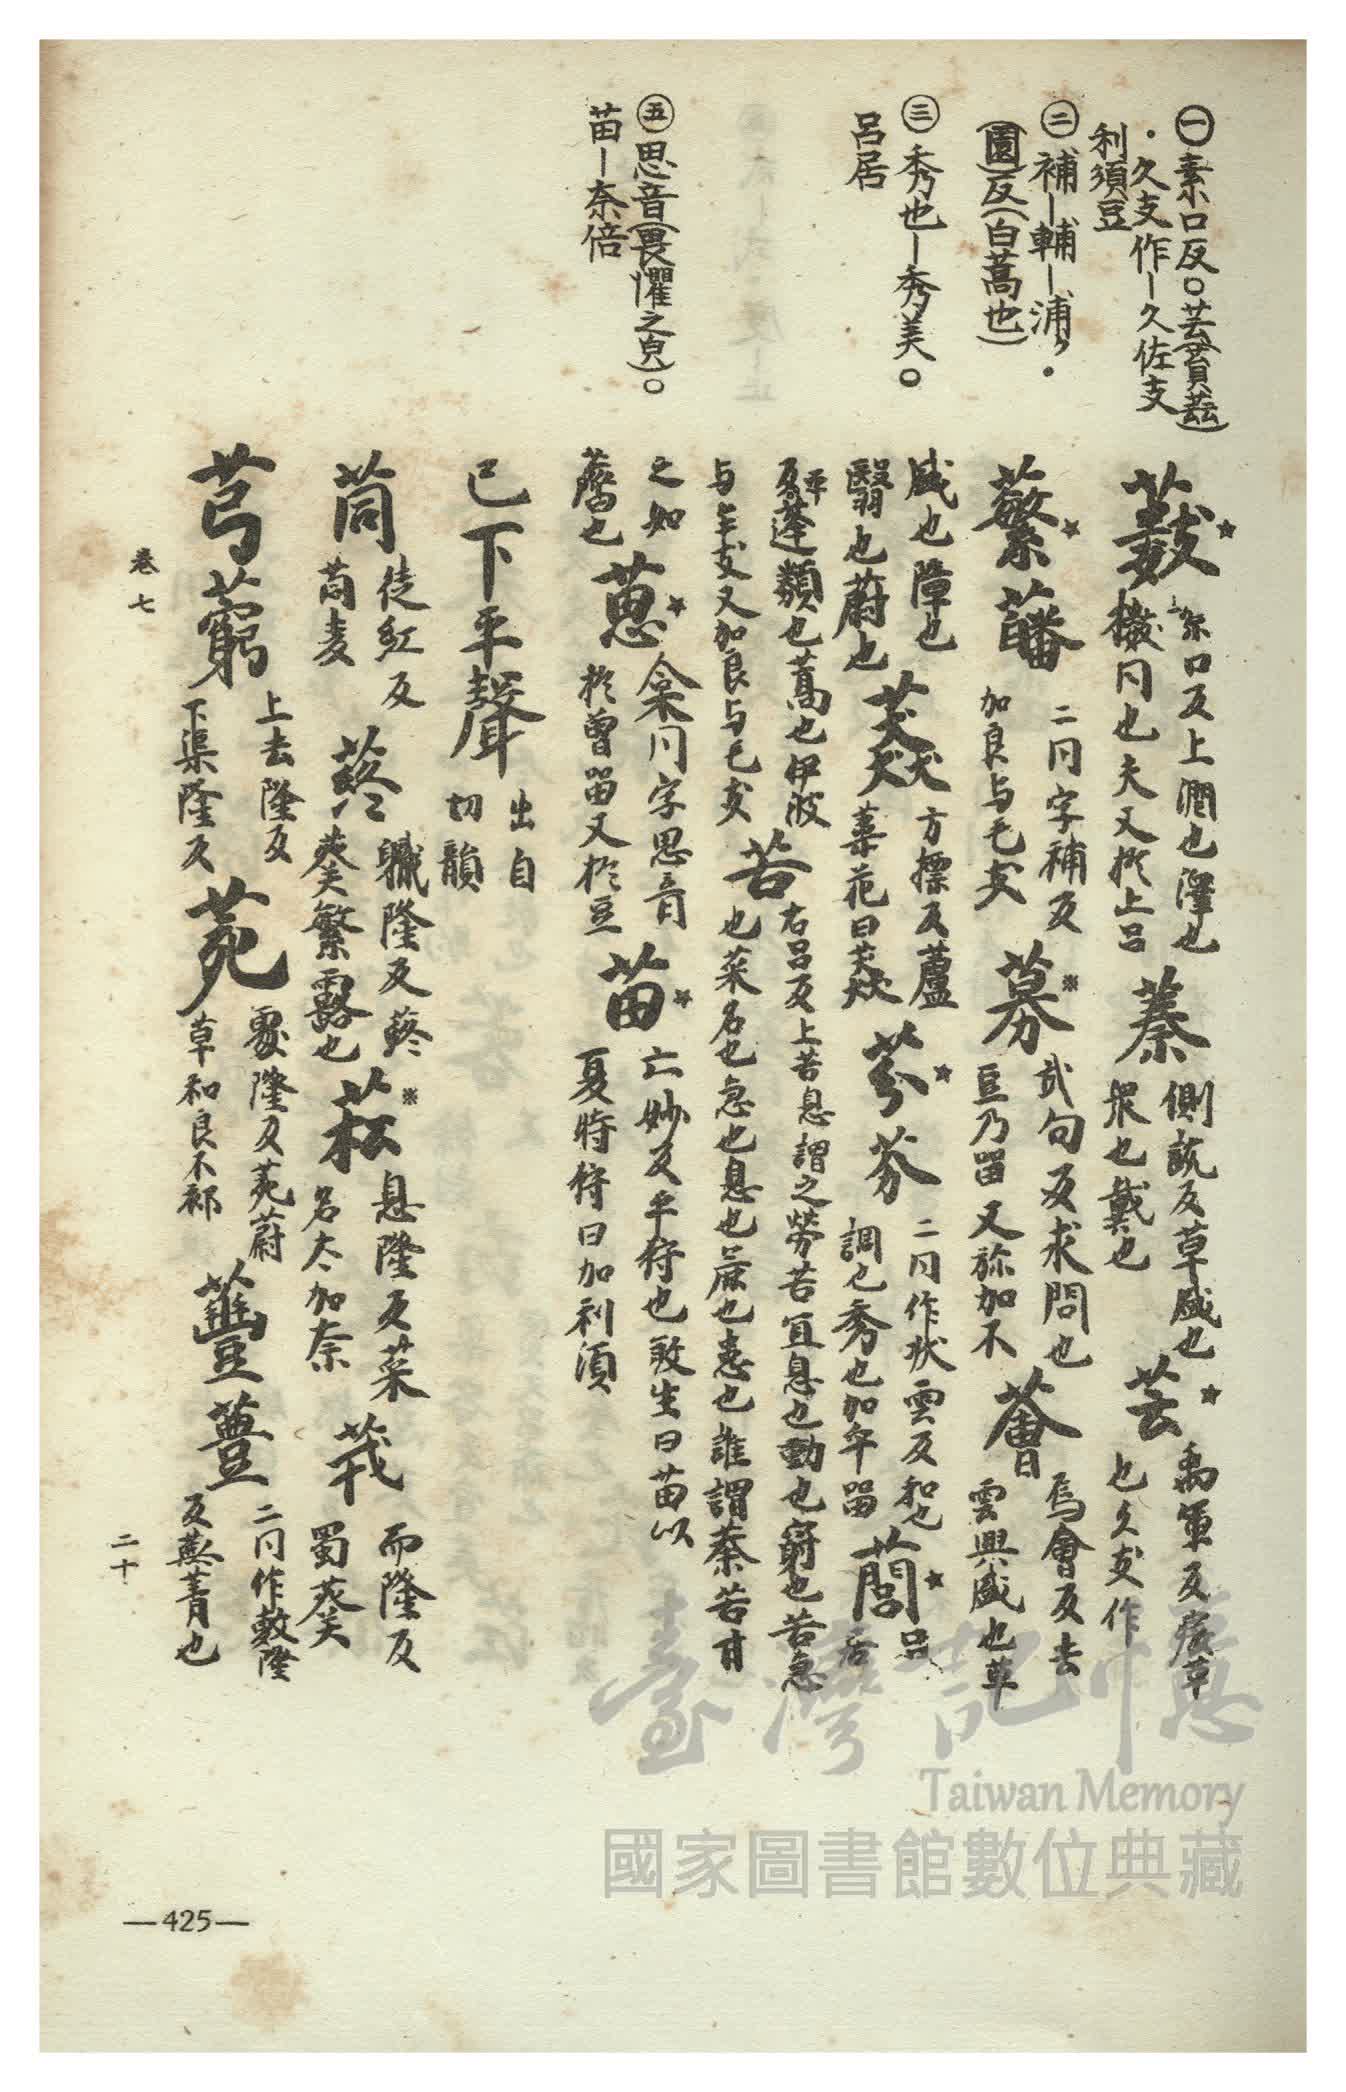 ㊀素口反○芸(蕡䒳)
・久支作ー久佐支
利須豆
㊁補ー輔ー浦〻・
(園)反(白蒿也)
㊂秀也ー秀美○
呂居
㊄思音(畏懼之皃)○
苗ー奈倍
藪 口反上潤也澤也
棷同也夫又於上呂
蓁 側詵反草盛也
衆也戴也
芸 禹軍反 草
也久支作
蘩䕰 二同字補反
加良与毛支
蓩 武句反求問也
豆乃留又弥加不
薈 烏會反去
雲興盛也草
盛也障也
翳也蔚也
芺 方標反蘆
葉花曰
芬 二同作状雲反和也
調也秀也加乎留
䕡 呂
居
反蓬類也蒿也伊波
与毛支又加良与毛支
苦 右呂反上苦息謂之勞苦宜息也勤也窮也苦急
也菜名也急也息也 也患也誰謂荼苦甘
之如
薺也
葸 同字思音
於曾留又於豆
苗 亡妙反平狩也敢生曰苗以
夏時狩曰加利須
已下平聲 出自
切韻
茼 徒紅反
茼麦
蔠 職隆反蔠
葵繁露也
菘 息隆反菜
名太加奈
茙 而隆反
蜀葵
芎藭 上去隆反
下渠隆反
蒬 隆反 蔚
草和良不
蘴 二同作敷隆
反蕪菁也
卷七
二十
—425—
臺灣記憶
Taiwan Memory
國家圖書館數位典藏